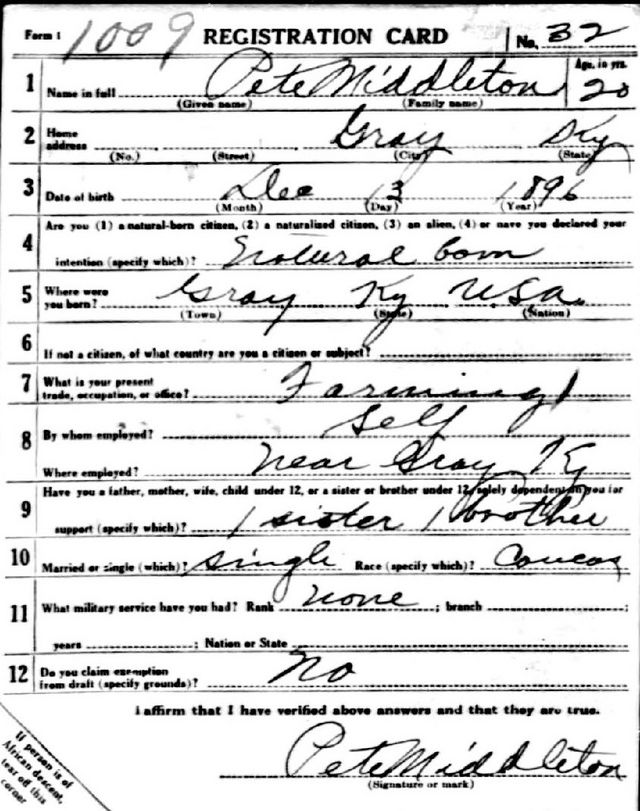 Form 1 1009 REGISTRATION CARD No. 32
1 Name in full Pete Middleton Age, in yrs. 20
(Given name) (Family name)
2 Home address Gray Ky
(No.) (Street) (City) (State)
3 Date of birth Dec 13 1896
(Month) (Day) (Year)
4 Are you (1) a natural-born citizen, (2) a naturalized citizen, (3) an alien, (4) or have you declared your
intention (specify which)? Natural born
5 Where were you born? Gray Ky U.S.A.
(Town) (State) (Nation)
6 If not a citizen, of what country are you a citizen or subject?
7 What is your present trade, occupation, or office? Farming
8 By whom employed? Self
Where employed? Near Gray, Ky
9 Have you a father, mother, wife, child under 12, or a sister or brother under 12, solely dependent on you for
support (specify which)? 1 sister 1 brother
10 Married or single (which)? Single Race (specify which)? Caucas
11 What military service have you had? Rank None ; branch ;
years ; Nation or State
12 Do you claim exemption from draft (specify grounds)? No
I affirm that I have verified above answers and that they are true.
Pete Middleton
(Signature or mark)
If person is of
African descent,
tear off this
corner